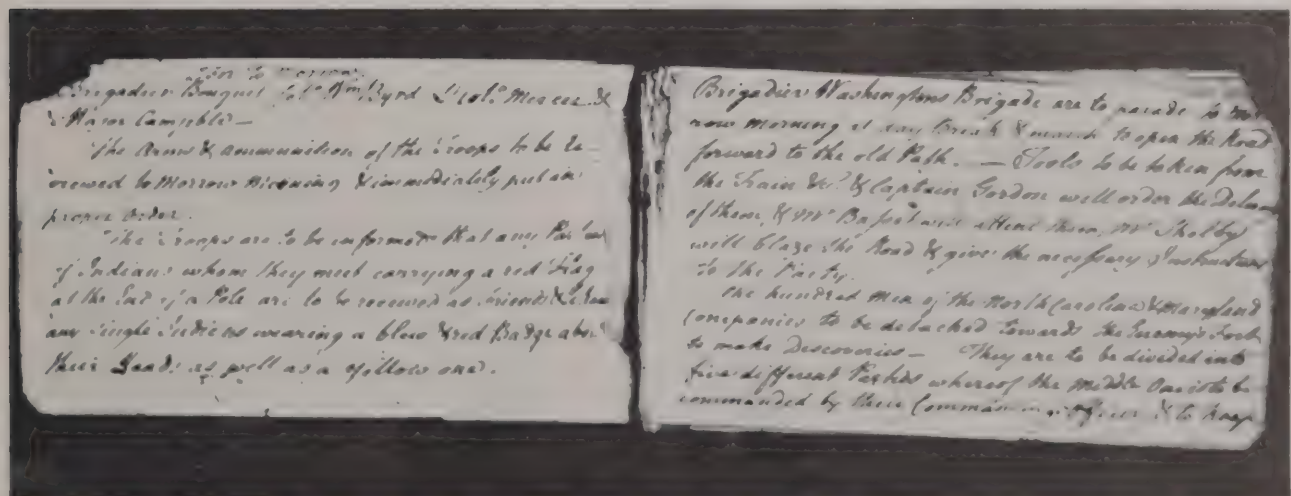 for to morrow
Brigadier Bouquet Colo. Wm. Byrd Lt. Colo. Mercer &
Major Campble —
The Arms & ammunition of the Troops to be Re-
viewed to Morrow Morning & immediately put in
proper order.
The Troops are to be informed that any Parties
of Indians whom they meet carrying a red Flag
at the End of a Pole are to be received as Friends &
any Single Indians wearing a blew & red Badge about
their Heads as well as a yellow one.
Brigadier Washingtons Brigade are to parade to mor-
row morning at day Break & march to open the Road
forward to the old Path. — Tools to be taken from
the Train &ca. & Captain Gordon will order the
of them, & Mr. Basset will attend them, Mr. Shelby
will blaze the Road & give the necessary Instructions
to the Party.
One hundred Men of the North Carolina & Maryland
Companies to be detached towards the Enemy's Fort
to make Discoveries — They are to be divided into
five different Parties whereof the middle One is to be
commanded by their Commanding Officer & to keep